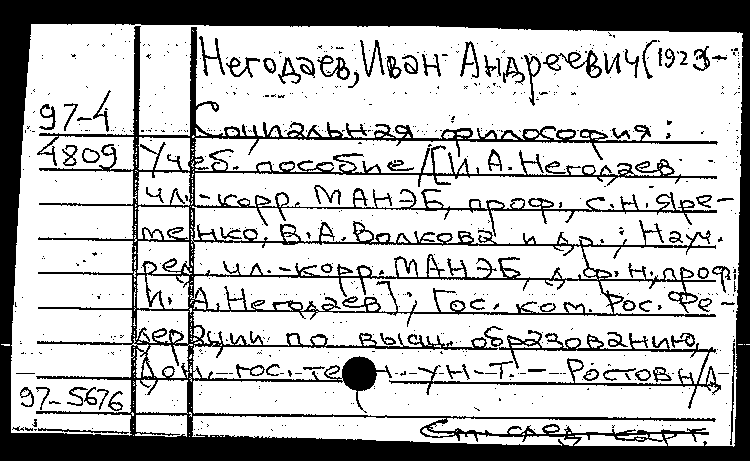 Негодаев, Иван Андреевич (1923-
97-4 Социальная философия:
4809 Учеб. пособие / [И.А. Негодаев,
чл.-корр. МАНЭБ, проф., С.Н. Яре-
менко, В.А. Волкова и др.; Науч.
ред. чл.-корр. МАНЭБ, д.ф.н., проф
И. А. Негодаев]; Гос. ком. Рос. Фе-
дерации по высш. образованию,
Дон. гос. техн. ун-т. - Ростов н/Д
97-5676
См. след. карт.